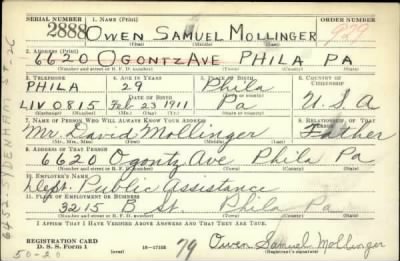 SERIAL NUMBER 1. NAME (Print) ORDER NUMBER
2888 OWEN SAMUEL MOLLINGER 929
(First) (Middle) (Last)
2. ADDRESS (Print)
6620 OGONTZ AVE PHILA PA
(Number and street or R. F. D. number) (Town) (County) (State)
3. TELEPHONE 4. AGE IN YEARS 5. PLACE OF BIRTH 6. COUNTRY OF CITIZENSHIP
PHILA 29 Phila
LIV 0815 Feb 23 1911 Pa U.S.A
7. NAME OF PERSON WHO WILL ALWAYS KNOW YOUR ADDRESS 8. RELATIONSHIP OF THAT PERSON
Mr. David Mollinger Father
(Mr., Mrs., Miss) (First) (Middle) (Last)
9. ADDRESS OF THAT PERSON
6620 Ogontz Ave Phila Pa
(Number and street or R. F. D. number) (Town) (County) (State)
10. EMPLOYER'S NAME
Dept. Public Assistance
11. PLACE OF EMPLOYMENT OR BUSINESS
3215 B St. Phila Pa
(Number and street or R. F. D. number) (Town) (County) (State)
I AFFIRM THAT I HAVE VERIFIED ABOVE ANSWERS AND THAT THEY ARE TRUE.
REGISTRATION CARD
D. S. S. Form 1 16—17105 79 Owen Samuel Mollinger
(Registrant's signature)
50-20